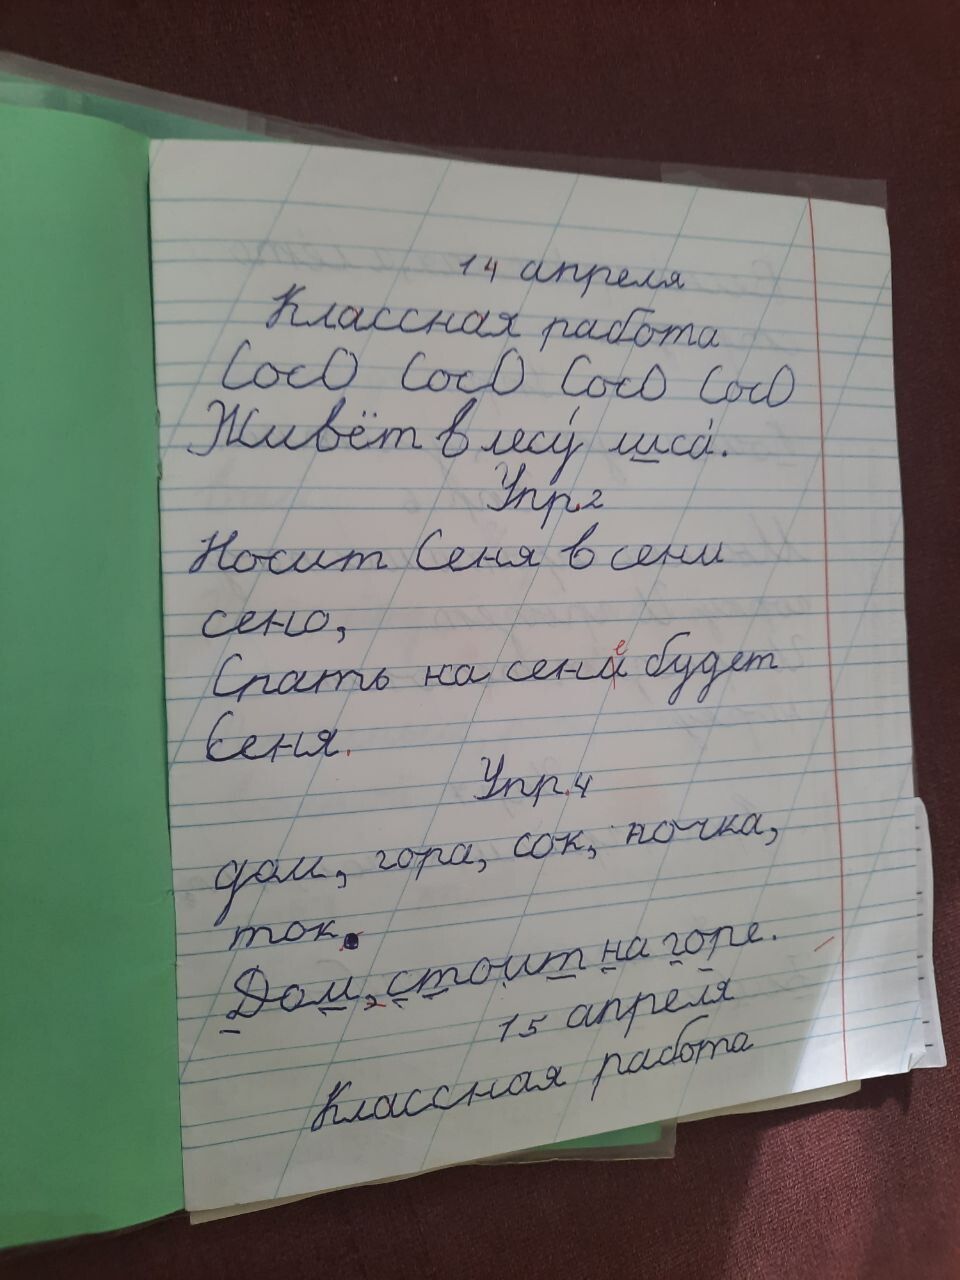 14 апреля
Классная работа
СосО СосО СосО СосО
Живёт в лесу́ лиса́.
Упр.2
Носит Сеня в сени
сено,
Спать на сени е будет
Сеня.
Упр.4
дом, гора, сок, ночка,
ток.
Дом, стоит на горе.
15 апреля
Классная работа